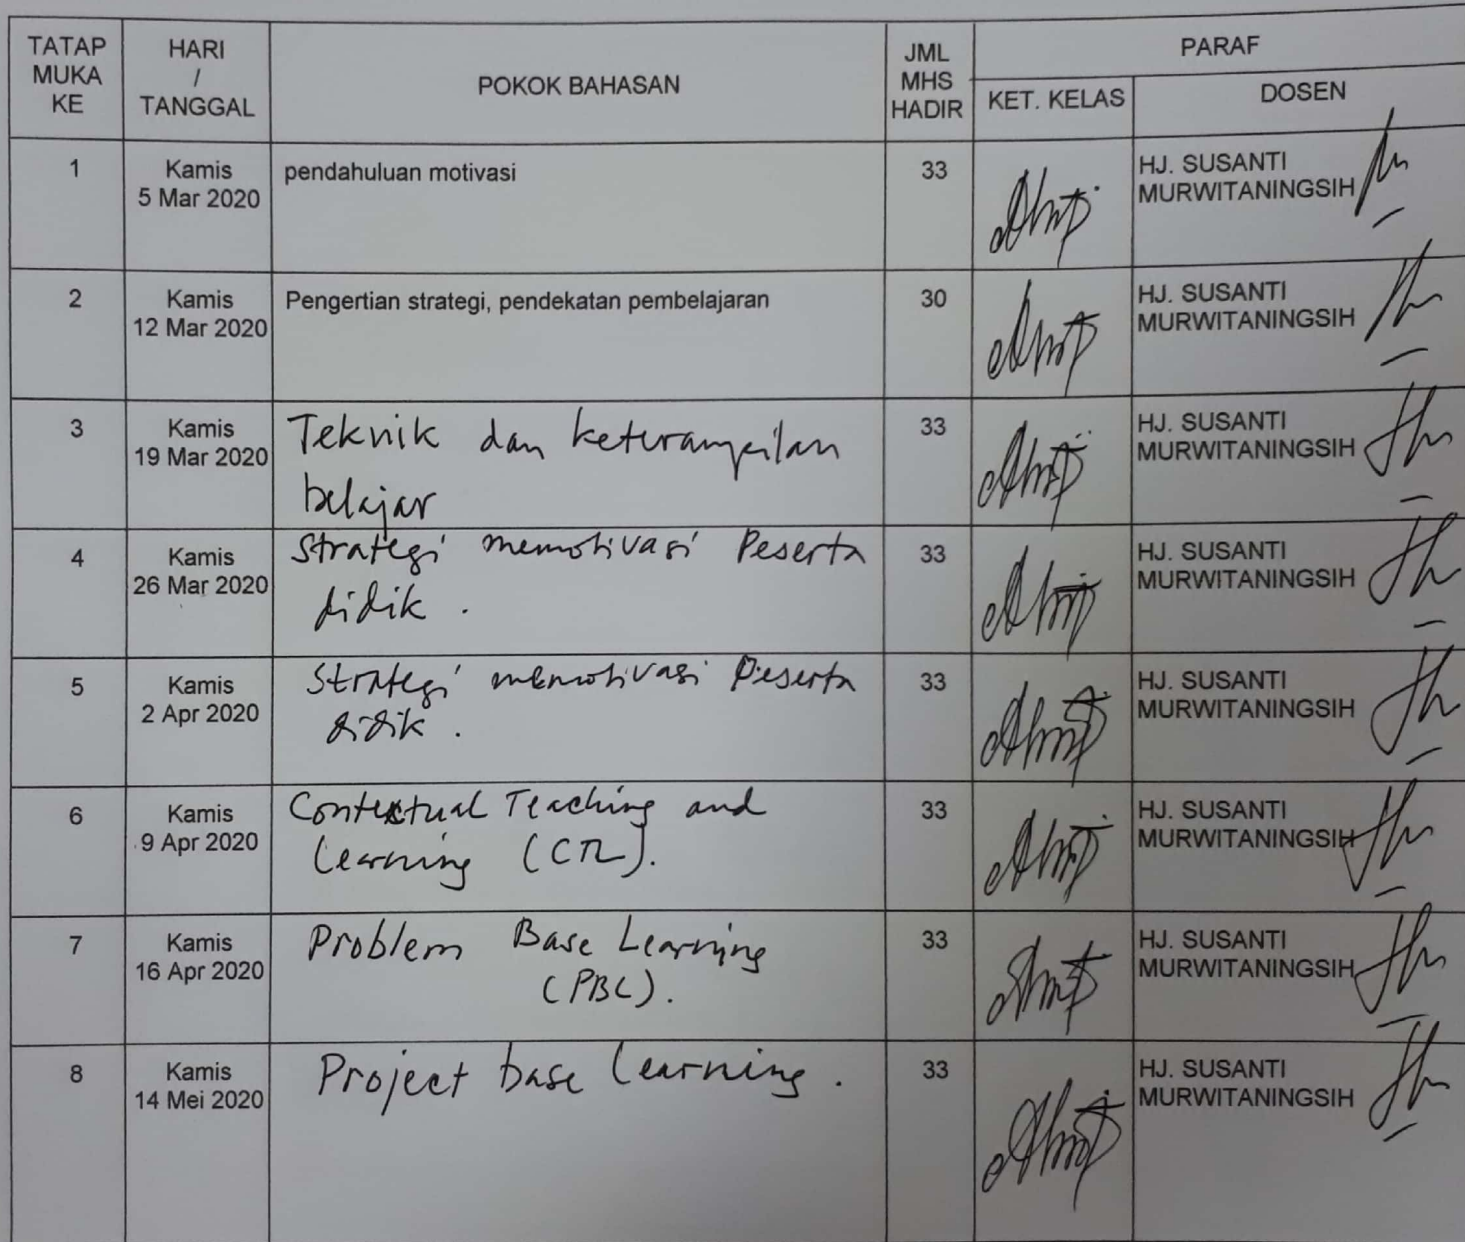 TATAP
MUKA
KE
HARI
/
TANGGAL
POKOK BAHASAN
JML
MHS
HADIR
PARAF
KET. KELAS
DOSEN
1
Kamis
5 Mar 2020
pendahuluan motivasi
33
HJ. SUSANTI
MURWITANINGSIH
2
Kamis
12 Mar 2020
Pengertian strategi, pendekatan pembelajaran
30
HJ. SUSANTI
MURWITANINGSIH
3
Kamis
19 Mar 2020
Teknik dan keterampilan
belajar
33
HJ. SUSANTI
MURWITANINGSIH
4
Kamis
26 Mar 2020
Strategi memotivasi Peserta
didik .
33
HJ. SUSANTI
MURWITANINGSIH
5
Kamis
2 Apr 2020
Strategi memotivasi Peserta
didik .
33
HJ. SUSANTI
MURWITANINGSIH
6
Kamis
9 Apr 2020
Contextual Teaching and
Learning (CTL).
33
HJ. SUSANTI
MURWITANINGSIH
7
Kamis
16 Apr 2020
Problem Base Learning
(PBL).
33
HJ. SUSANTI
MURWITANINGSIH
8
Kamis
14 Mei 2020
Project base Learning .
33
HJ. SUSANTI
MURWITANINGSIH